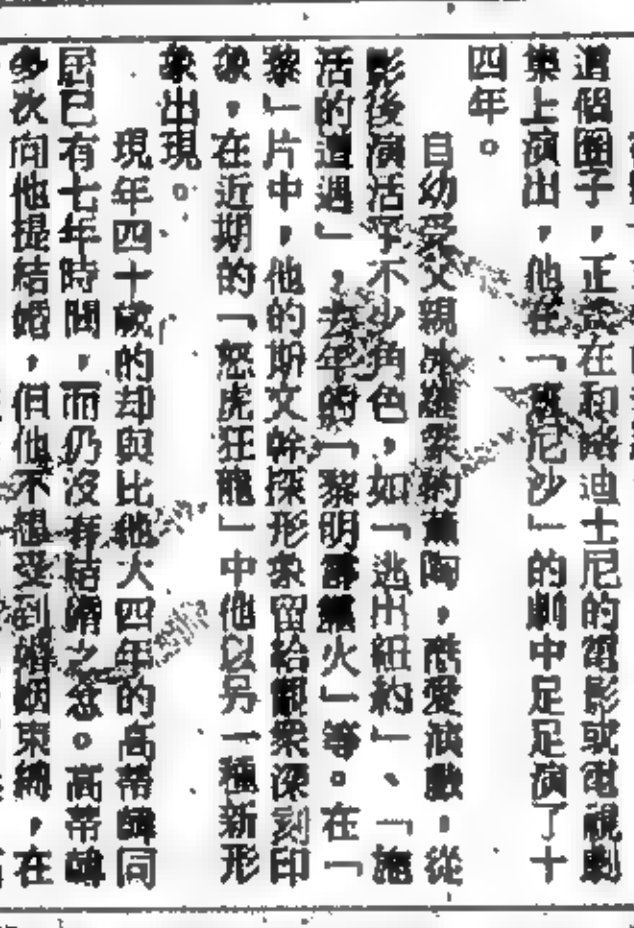 這個圈子，正式在和路迪士尼的電影或電視劇
集上演出，他在「 尼沙」的劇中足足演了十
四年。
自幼受父親 羅素的薰陶，酷愛演戲，從
影後演活了不少角色，如「逃出紐約」、「施
活的遭遇」，去年的「黎明 火」等。在「
黎」片中，他的斯文幹探形象留給觀衆深刻印
象，在近期的「怒虎狂龍」中他以另一種新形
象出現。
現年四十歲的却與比他大四年的高蒂韓同
居已有七年時間，而仍沒有結婚之念。高蒂韓
多次向他提結婚，但他不想受到婚姻束縛，在